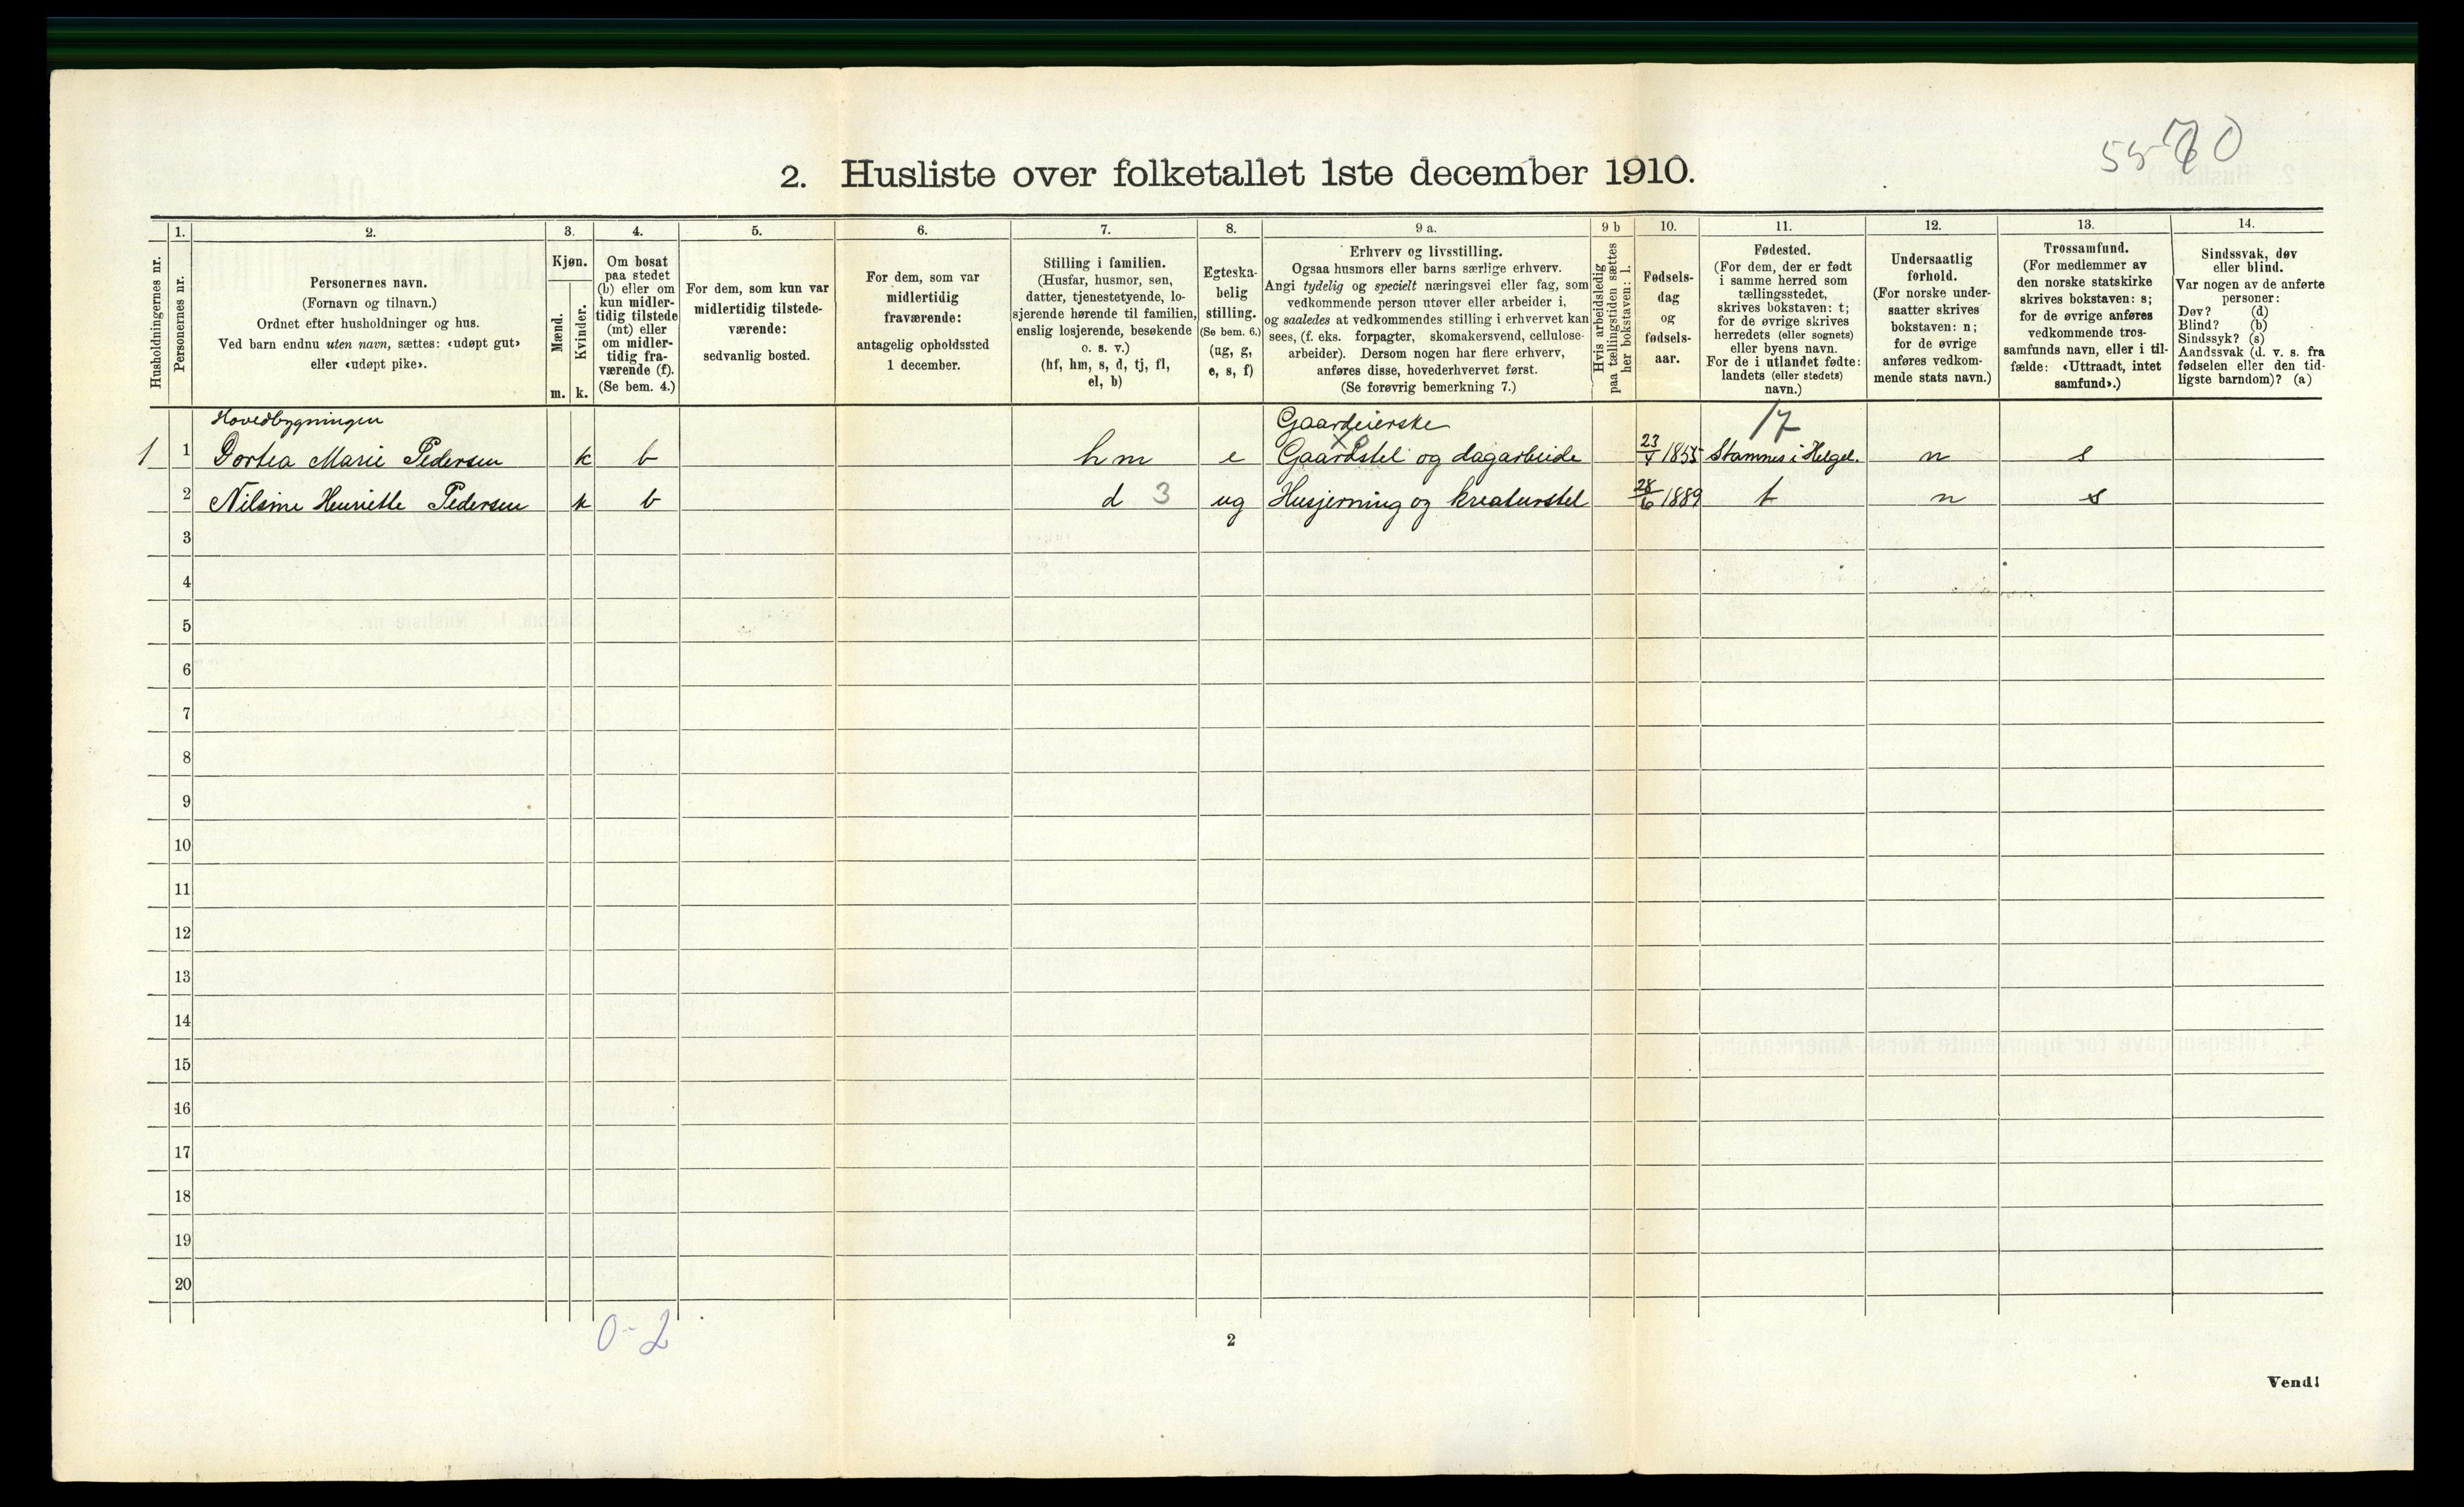 55-70
2. Husliste over folketallet 1ste december 1910.
Husholdningernes nr.
1. Personernes nr.
2. Personernes navn.
(Fornavn og tilnavn.)
Ordnet efter husholdninger og hus.
Ved barn endnu uten navn, sættes: «udøpt gut»
eller «udøpt pike».
3. Kjøn.
Mænd. Kvinder.
m. k.
4. Om bosat
paa stedet
(b) eller om
kun midler-
tidig tilstede
(mt) eller
om midler-
tidig fra-
værende (f).
(Se bem. 4.)
5. For dem, som kun var
midlertidig tilstede-
værende:
sedvanlig bosted.
6. For dem, som var
midlertidig
fraværende:
antagelig opholdssted
1 december.
7. Stilling i familien.
(Husfar, husmor, søn,
datter, tjenestetyende, lo-
sjerende hørende til familien,
enslig losjerende, besøkende
o. s. v.)
(hf, hm, s, d, tj, fl,
el, b)
8. Egteska-
belig
stilling.
(Se bem. 6.)
(ug, g,
e, s, f)
9 a. Erhverv og livsstilling.
Ogsaa husmors eller barns særlige erhverv.
Angi tydelig og specielt næringsvei eller fag, som
vedkommende person utøver eller arbeider i,
og saaledes at vedkommendes stilling i erhvervet kan
sees, (f. eks. forpagter, skomakersvend, cellulose-
arbeider). Dersom nogen har flere erhverv,
anføres disse, hovederhvervet først.
(Se forøvrig bemerkning 7.)
9 b Hvis arbeidsledig
paa tællingstiden sættes
her bokstaven: l.
10. Fødsels-
dag
og
fødsels-
aar.
11. Fødested.
(For dem, der er født
i samme herred som
tællingsstedet,
skrives bokstaven: t;
for de øvrige skrives
herredets (eller sognets)
eller byens navn.
For de i utlandet fødte:
landets (eller stedets)
navn.)
12. Undersaatlig
forhold.
(For norske under-
saatter skrives
bokstaven: n;
for de øvrige
anføres vedkom-
mende stats navn.)
13. Trossamfund.
(For medlemmer av
den norske statskirke
skrives bokstaven: s;
for de øvrige anføres
vedkommende tros-
samfunds navn, eller i til-
fælde: «Uttraadt, intet
samfund».)
14. Sindssvak, døv
eller blind.
Var nogen av de anførte
personer:
Døv? (d)
Blind? (b)
Sindssyk? (s)
Aandssvak (d. v. s. fra
fødselen eller den tid-
ligste barndom)? (a)
Hovedbygningen Gaardeierske 17
1 1 Dortea Marie Pedersen k b hm e Gaardstel og dagarbeide 23/4 1855 Stamnes i Helgel. n s
2 Nilsine Henriette Pedersen k b d 3 ug Husjerning og kreaturstel 28/6 1889 t n s
3
4
5
6
7
8
9
10
11
12
13
14
15
16
17
18
19
20
0-2
2
Vend!